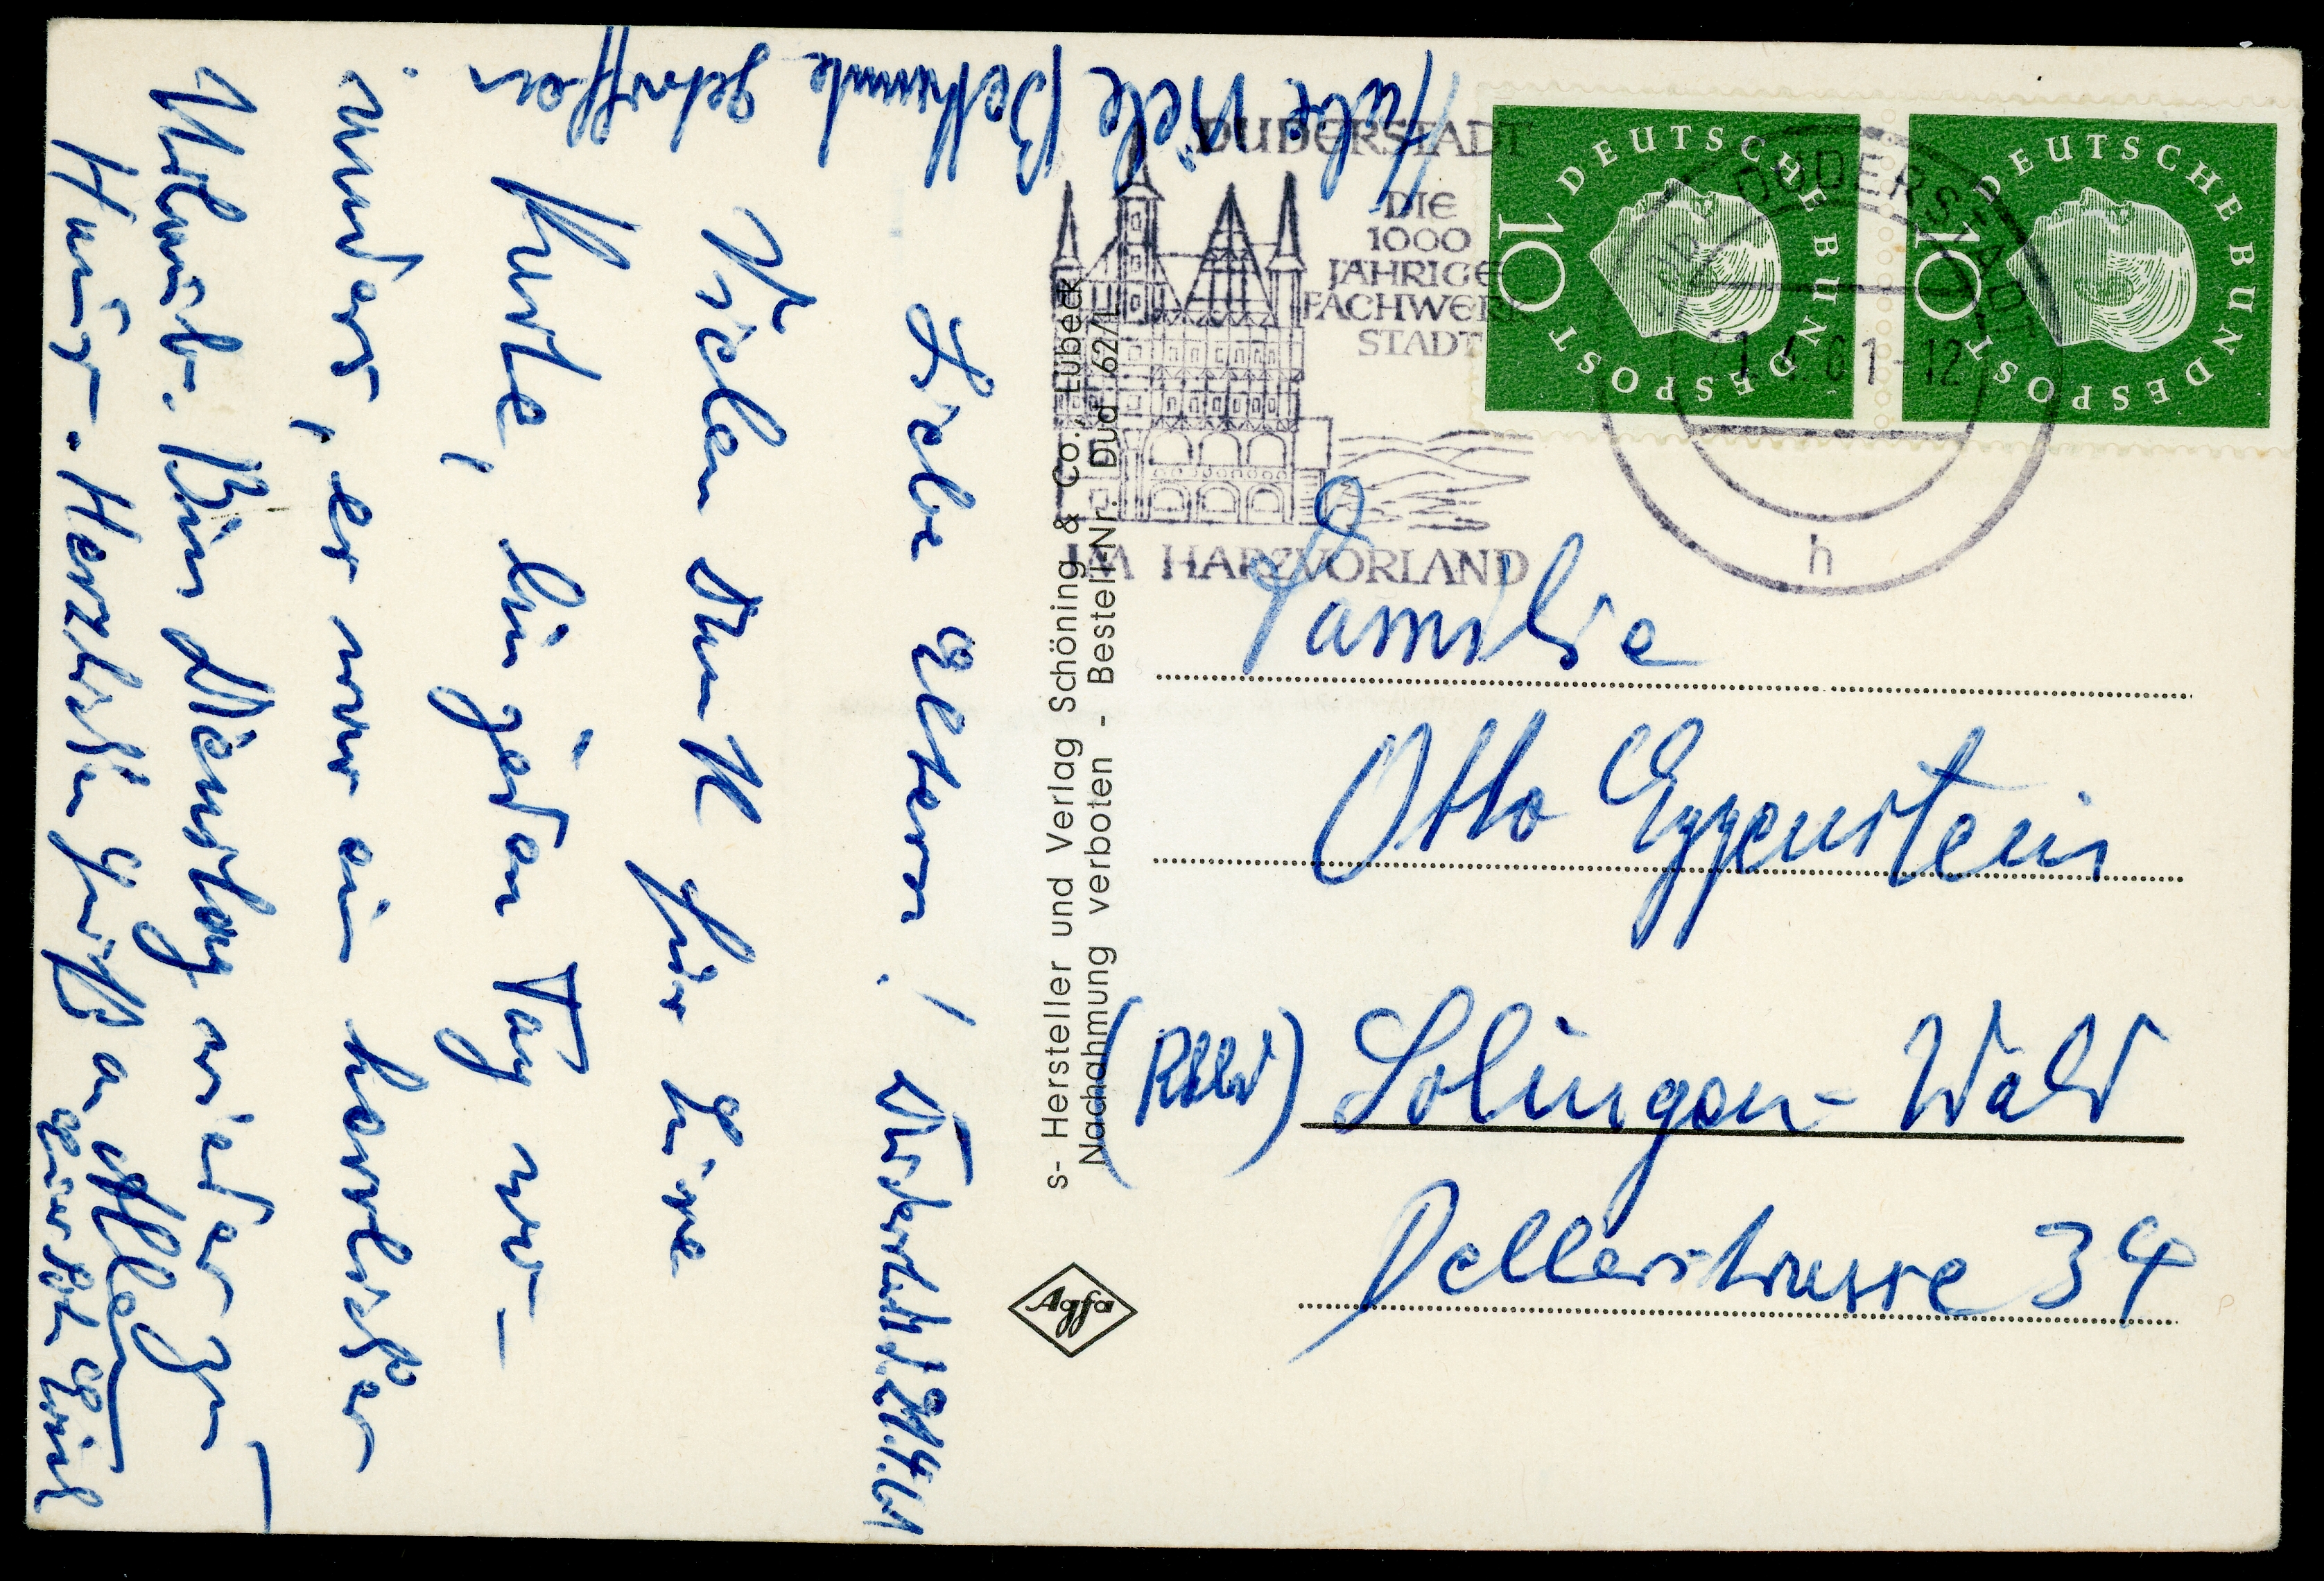 Habe viele Bekannte getroffen
Liebe Eltern! Duderstadt 21.4.61
Vielen Dank für Eure
Karte, bin jeden Tag un-
, es war ein herrlicher
Urlaub. Bin Dienstag wieder zu
Hause. Herzliche Grüße an Alle
Euer Sohn Erich
DUDERSTADT
DIE
1000
JÄHRIGE
FACHWERK
STADT
IM HARZVORLAND
DEUTSCHE BUNDESPOST
10
DEUTSCHE BUNDESPOST
10
DUDERSTADT
61-12
h
s- Hersteller und Verlag Schöning & Co., Lübeck
Nachahmung verboten - Bestell-Nr. Dud 62/L
Agfa
Familie
Otto Eppenstein
(Rhld) Solingen-Wald
Dellerstrasse 34